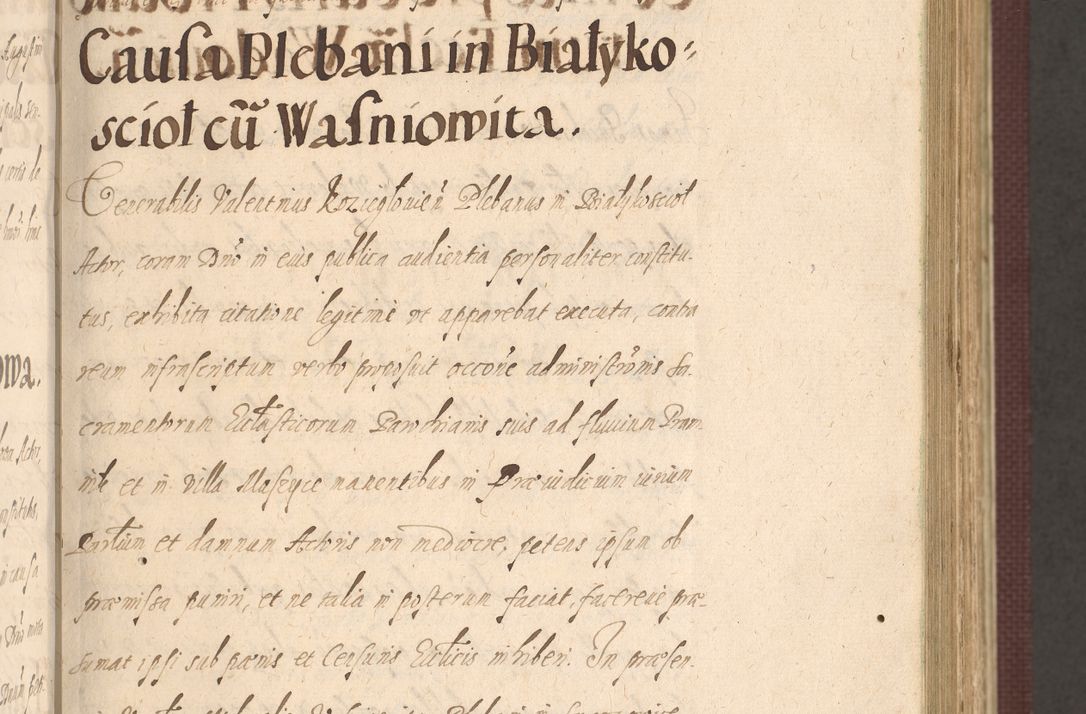 Causa Plebani in Białyko-
scioł cũ Wasniowita.
Venerabilis Valentinus Kozieglovień Plebanus in Białykosciół
Actor, coram Dnō in eius publica audientia personaliter constitu-
tus, exhibita citatione legitimè ut apparebat executa, contra
reum infrascriptum verbo proposuit occōne administrōnis Sa-
cramentorum Ecclasticorum Parochianis suis ad fluvium Pram-
nik et in villa manentibus in Præiudicium iurium
Partium et damnum Actoris non mediocre, petens ipsum ob
præmissa puniri, et ne talia in posterum faciat, facereue præ-
sumat ipsi sub pœnis et Censuris Ecclicis inhiberi. In præsen-